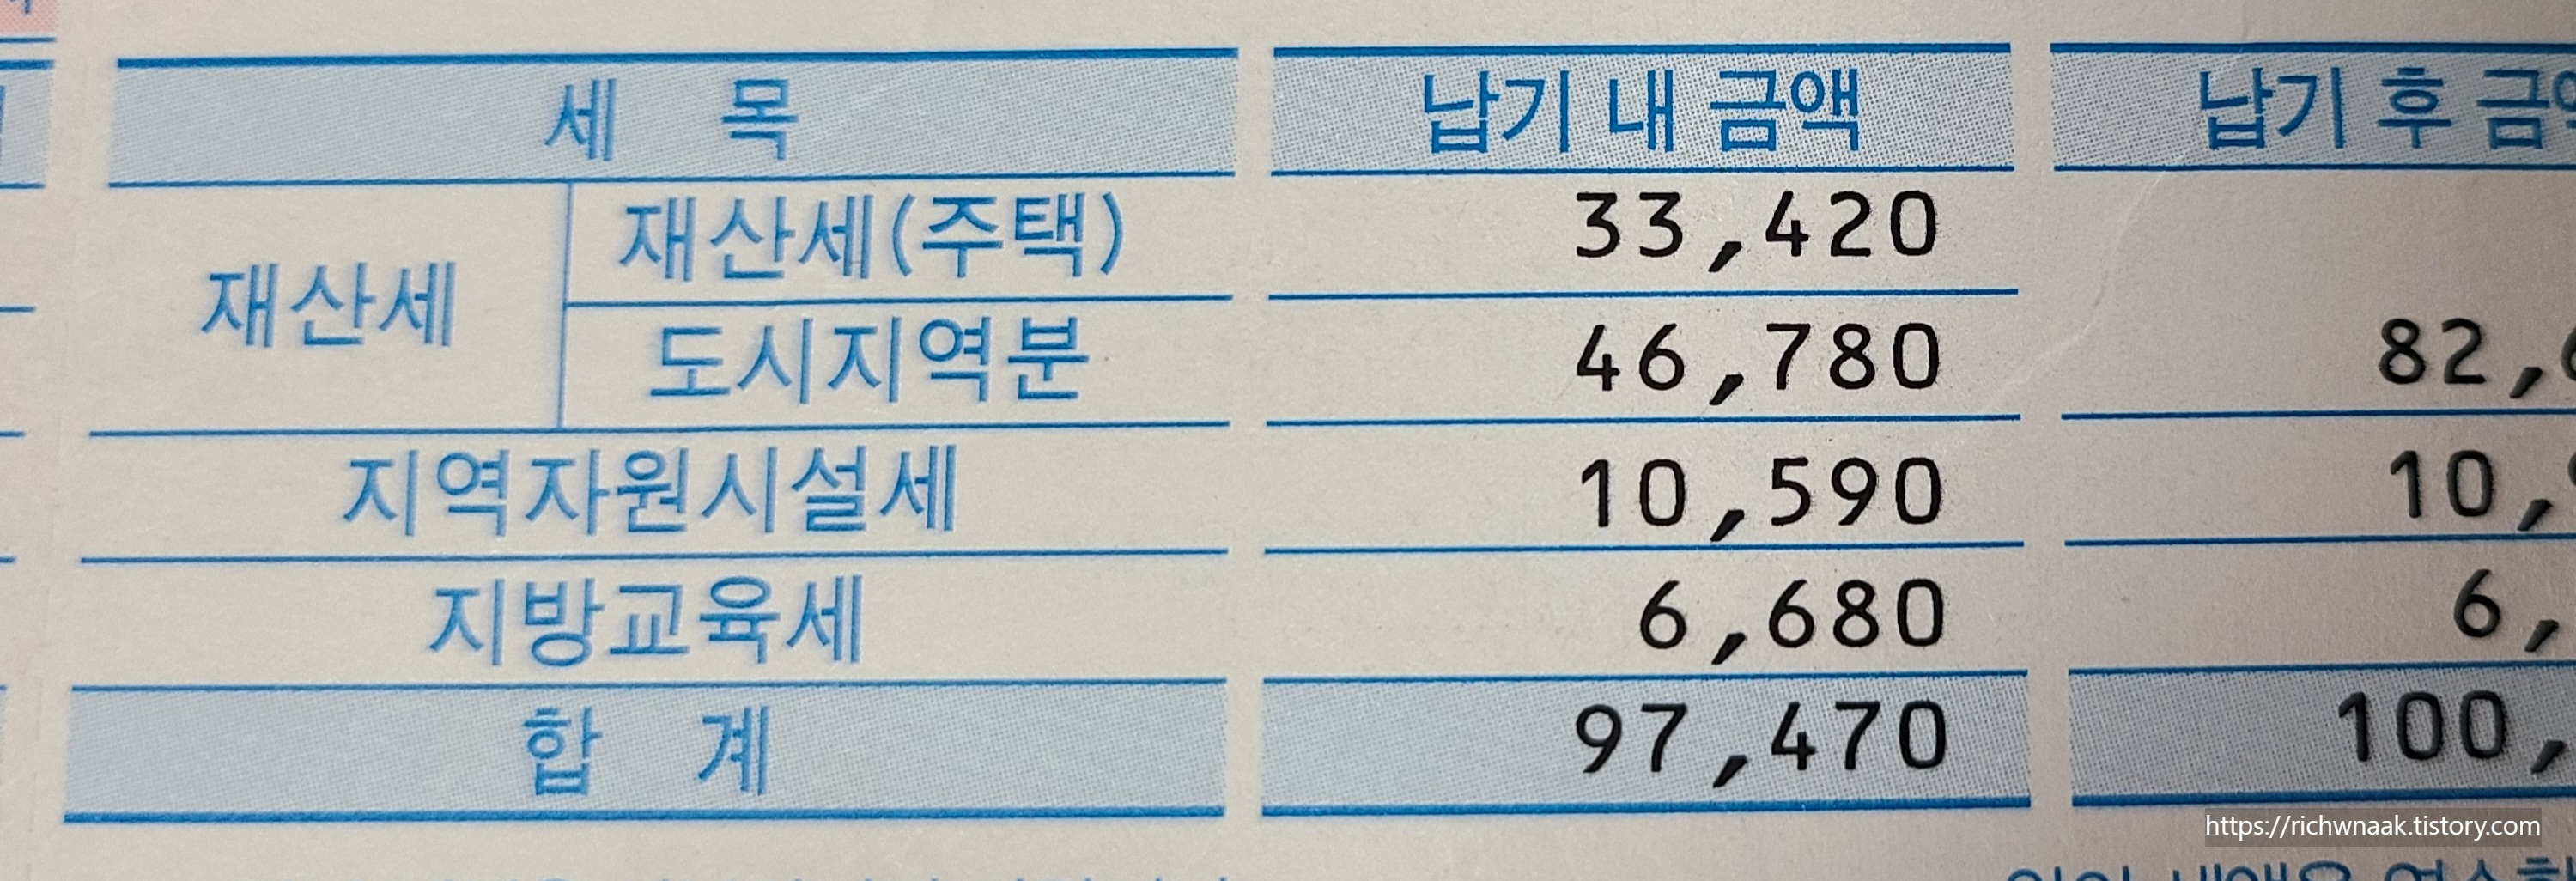 세 목 납기 내 금액 납기 후
재산세 재산세(주택) 33,420
도시지역분 46,780
지역자원시설세 10,590
지방교육세 6,680
합 계 97,470
https://richwnaak.tistory.com